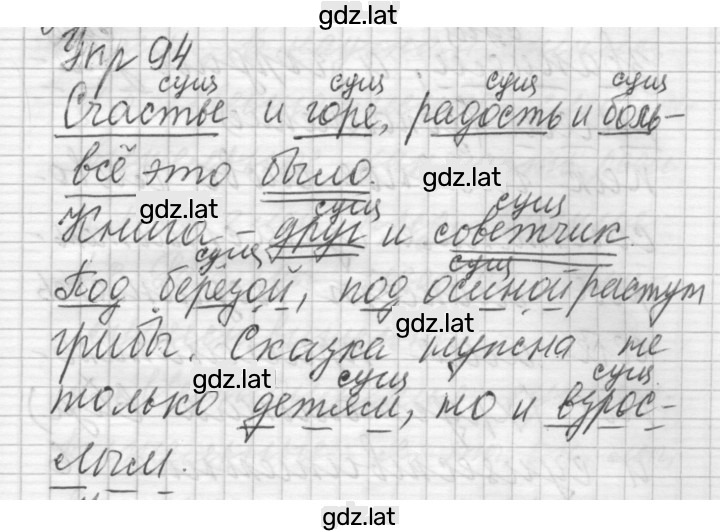 gdz.lat
Упр 94
сущ сущ сущ сущ
Счастье и горе, радость и боль -
всё это было. gdz.lat
gdz.lat сущ сущ
Книга - друг и советчик
сущ сущ
Под берёзой, под осиной растут
gdz.lat
грибы. Сказка нужна не
gdz.lat сущ сущ
только детям, но и взрос-
лым.
gdz.lat